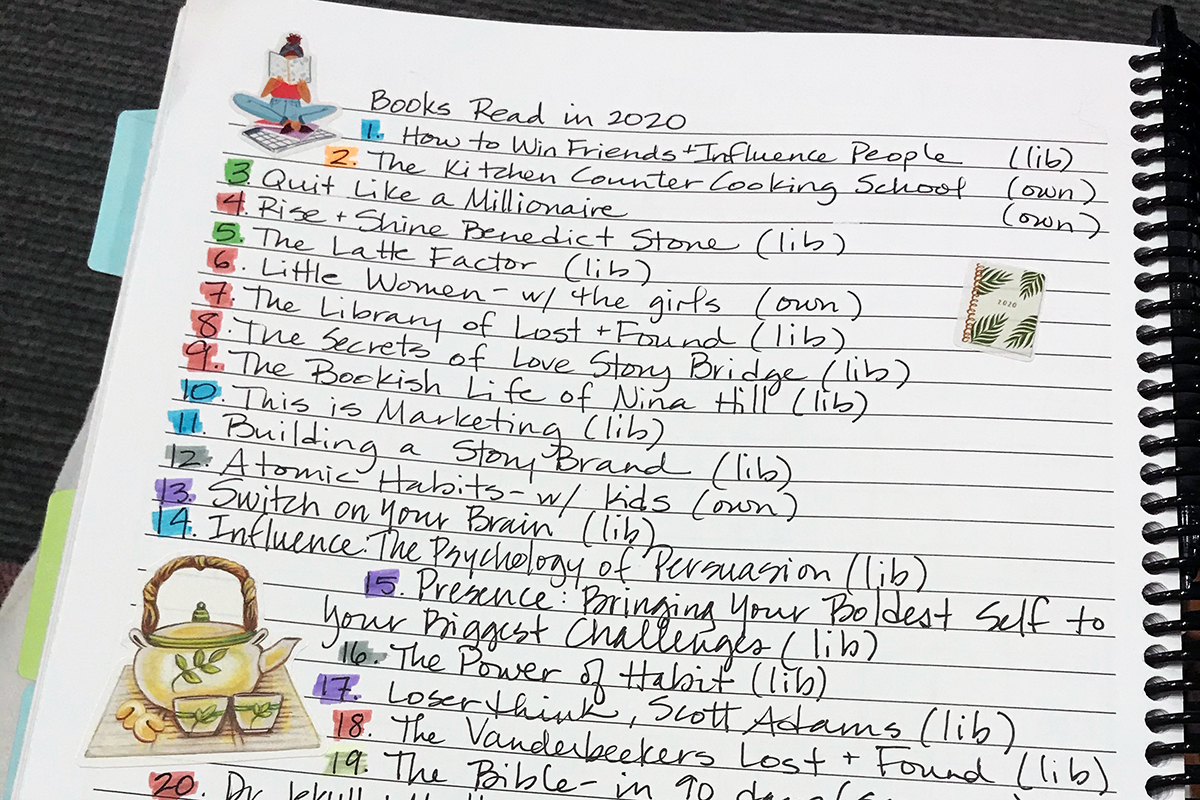 Books Read in 2020
1. How to Win Friends + Influence People (lib)
2. The Kitchen Counter Cooking School (own)
3 Quit Like a Millionaire (own)
4. Rise + Shine Benedict Stone (lib)
5. The Latte Factor (lib)
6. Little Women - w/ the girls (own)
7. The Library of Lost + Found (lib)
8. The Secrets of Love Story Bridge (lib)
9. The Bookish Life of Nina Hill (lib)
10. This is Marketing (lib)
11. Building a Story Brand (lib)
12. Atomic Habits - w/ kids (own)
13. Switch on Your Brain (lib)
14. Influence: The Psychology of Persuasion (lib)
15. Presence: Bringing Your Boldest Self to
Your Biggest Challenges (lib)
16. The Power of Habit (lib)
17. Loserthink, Scott Adams (lib)
18. The Vanderbeekers Lost + Found (lib)
19. The Bible - in 90
20. Dr. Jekyll
2020